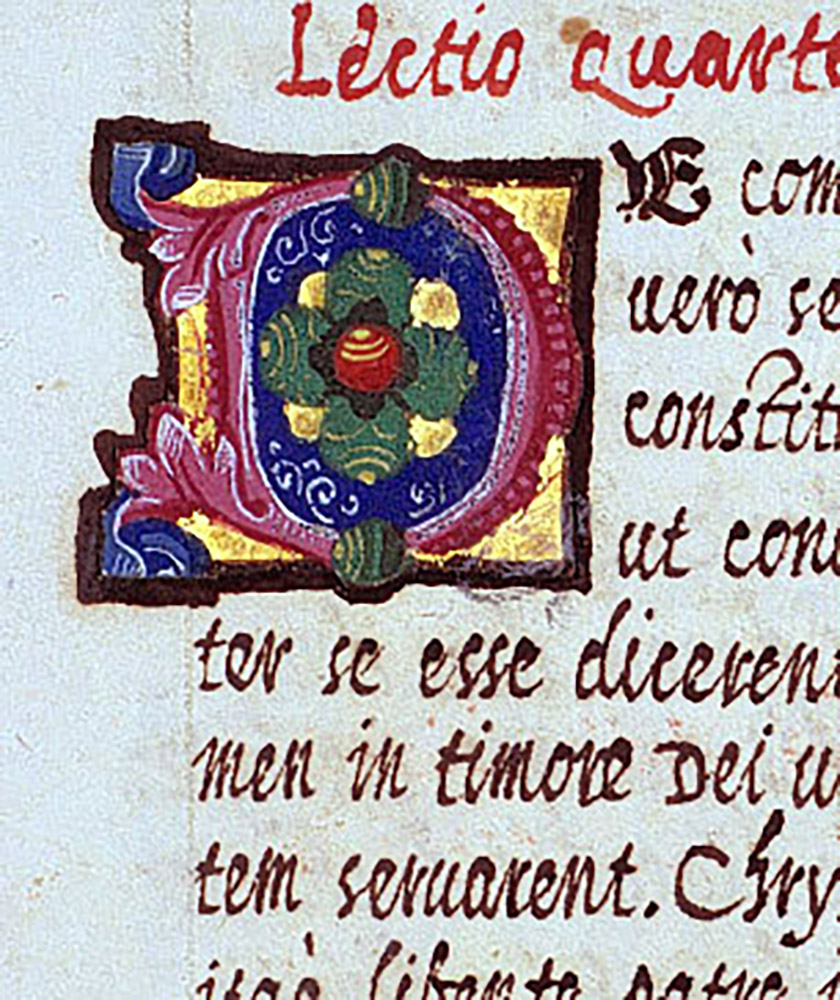 Lectio quarte
DE com
uerò se
constit
ut con
ter se esse dicerent
men in timore Dei u
tem seruarent. Chry